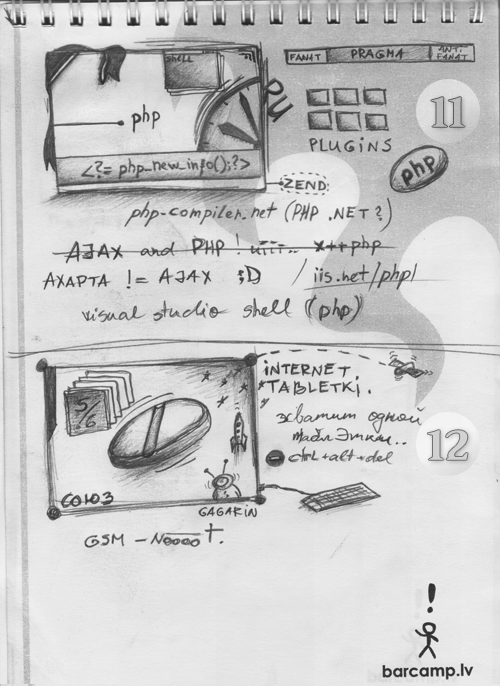 shell
FANAT PRAGMA ANTI FANAT
php
RU
11
<?= php_new_info();?>
PLUGINS
php
ZEND:
php-compiler.net (PHP .NET?)
AJAX and PHP ! x++php
AXAPTA != AJAX ;D / iis.net/php/
visual studio shell (php)
INTERNET
TABLETKI.
5/6
эхватит одной
12
ctrl+alt+del
СОЮЗ
GAGARIN
GSM - Noooo †.
!
barcamp.lv